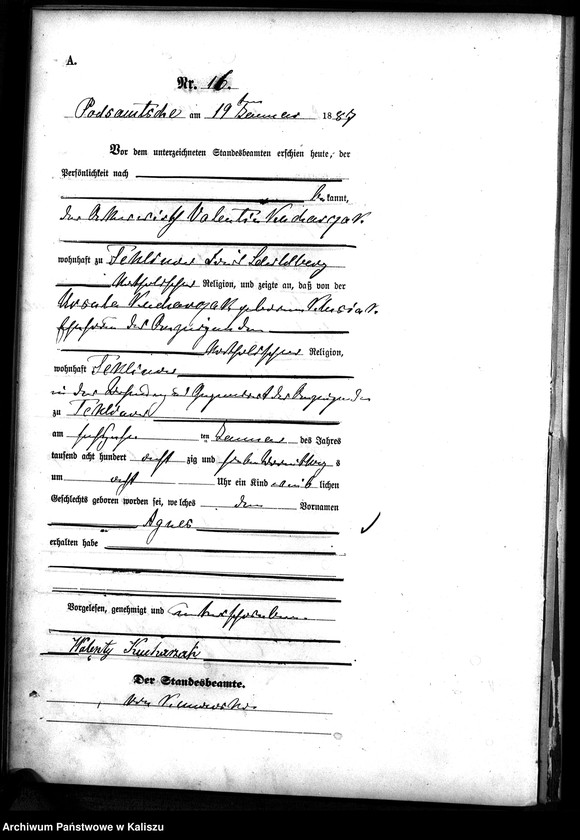 A.
Nr. 16.
Podsamtsche am 19 ten Januar 1887
Vor dem unterzeichneten Standesbeamten erschien heute, der
Persönlichkeit nach
be kannt,
der Valentin Kucharzak
wohnhaft zu Kreis Schildberg
katholischer Religion, und zeigte an, daß von der
Ursula Kucharzak, geborenen
Ehefrau des Anzeigenden
katholischer Religion,
wohnhaft
in der Wohnung in Gegenwart des Anzeigenden
zu
am ten Januar des Jahres
tausend acht hundert acht zig und sieben s
um acht Uhr ein Kind weib lichen
Geschlechts geboren worden sei, welches den Vornamen
Agnes
erhalten habe
Vorgelesen, genehmigt und unterschrieben.
Walenty Kucharzak
Der Standesbeamte.
Archiwum Państwowe w Kaliszu